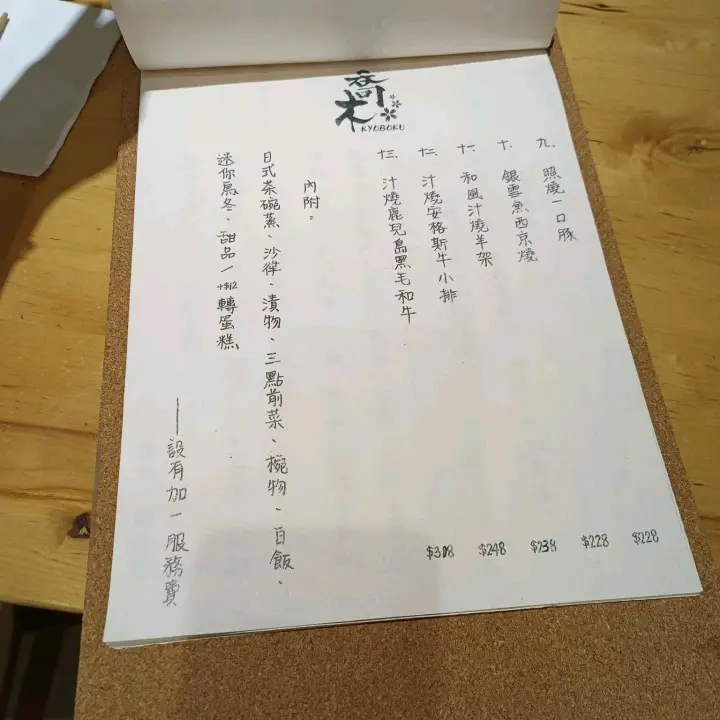 喬木
KYOBOKU
九、照燒一口豚 $228
十、銀雪魚西京燒 $228
十一、和風汁燒羊架 $238
十二、汁燒安格斯牛小排 $248
十三、汁燒鹿兒島黑毛和牛 $308
內附。
日式茶碗蒸、沙律、漬物、三點前菜、椀物、白飯、
迷你烏冬、甜品/+$12轉蛋糕
——設有加一服務費